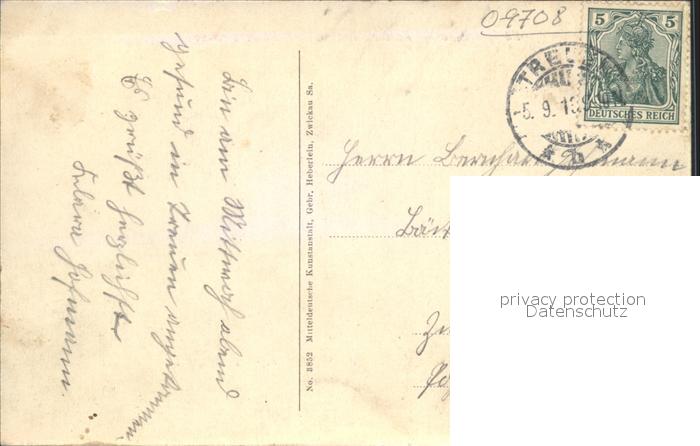 Bin am Mittwoch abend
gesund in Treuen angekommen.
Es grüßt herzlichst
Hofmann.
No. 3852 Mitteldeutsche Kunstanstalt, Gebr. Heberlein, Zwickau Sa.
09708
5 5
DEUTSCHES REICH
TREUEN
-5. 9. 13
* b *
Herrn
privacy protection
Datenschutz